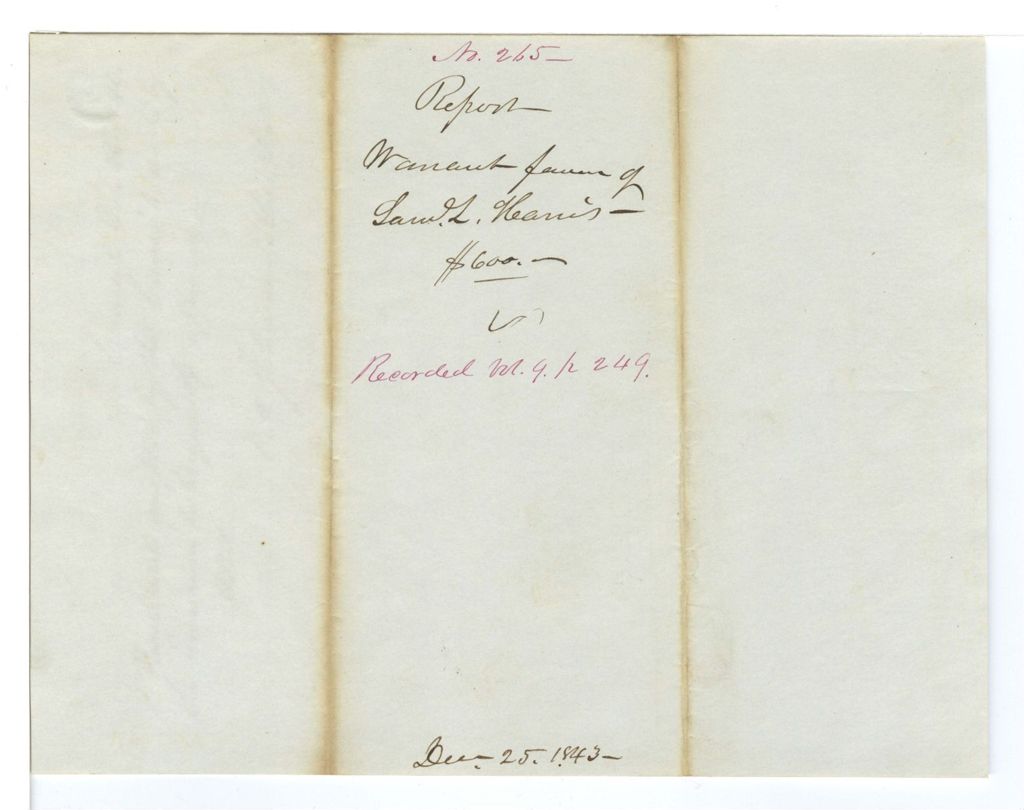 No. 265—
Report—
Warrant favor of
Saml. L. Harris—
$600.—
Recorded Vol. 9. p 249.
Dec. 25. 1843—